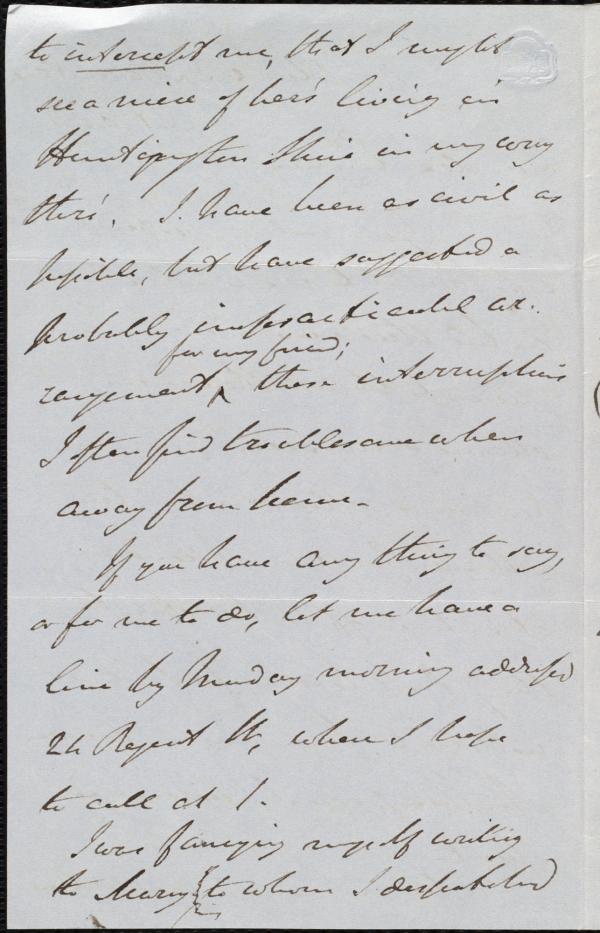 to intercept me, that I might
see a niece of her's living in
Huntingdon Shire in my way
ther'. I have been as civil as
possible, but have suggested a
probably impracticable ar-
for my friend;
rangement, these interruptions
I often find troublesome when
away from home.
If you have any thing to say,
or for me to do, let me have a
line by Monday morning addressed
24 Regent St, where I hope
to call at 1.
I was fancying myself writing
to Mary to whom I despatched